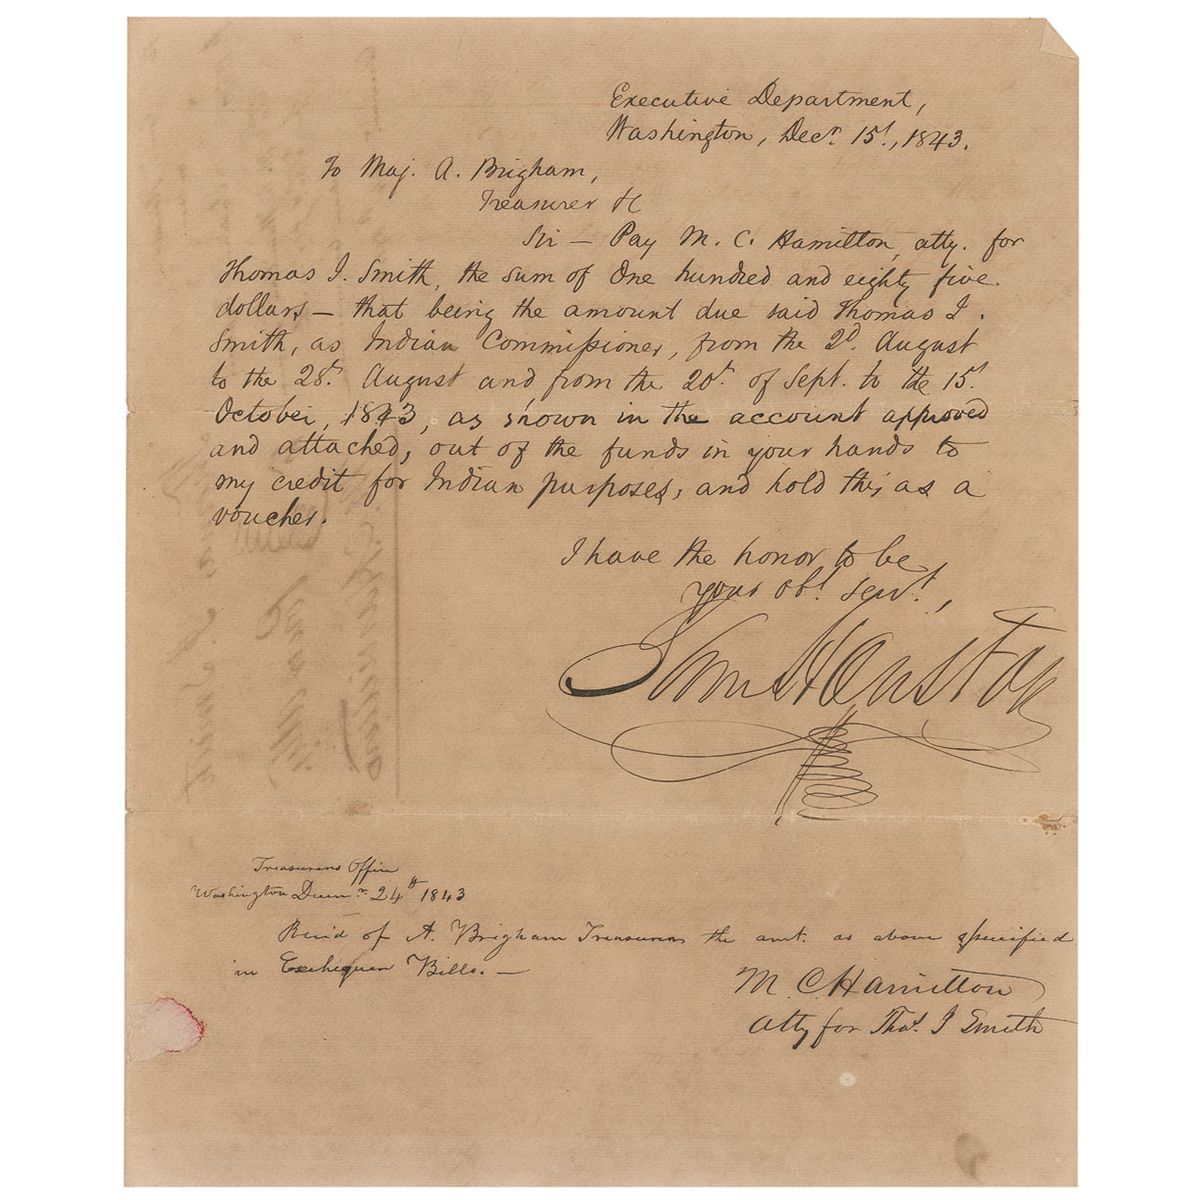 Executive Department,
Washington, Decr. 15t., 1843.
To Maj. A. Brigham,
Treasurer &c
Sir — Pay M. C. Hamilton, atty. for
Thomas I. Smith, the sum of One hundred and eighty five
dollars — that being the amount due said Thomas I.
Smith, as Indian Commissioner, from the 2d. August
to the 28t. August and from the 20t. of Sept. to the 15t.
October, 1843, as shown in the account approved
and attached, out of the funds in your hands to
my credit for Indian purposes, and hold this as a
voucher.
I have the honor to be
your obt. servt.,
Sam Houston
Treasurers Office
Washington Decemr. 24th 1843
Recd of A. Brigham Treasurer the amt. as above specified
in Exchequer Bills. —
M. C. Hamilton
Atty for Thos. I Smith